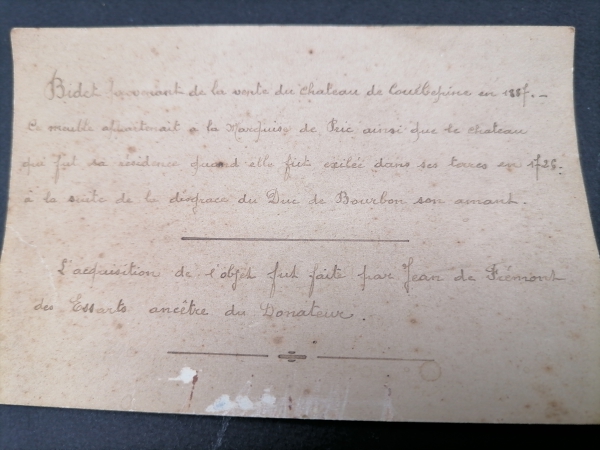 Bidet provenant de la vente du chateau de Courbepine en
Ce meuble appartenait a la Marquise de Prie ainsi que le chateau
qui fut sa résidence quand elle fut exilée dans ses terres en 1726.
à la suite de la disgrace du Duc de Bourbon son amant.
L'acquisition de l'objet fut faite par Jean de Frémont
des Essarts ancêtre du Donateur.